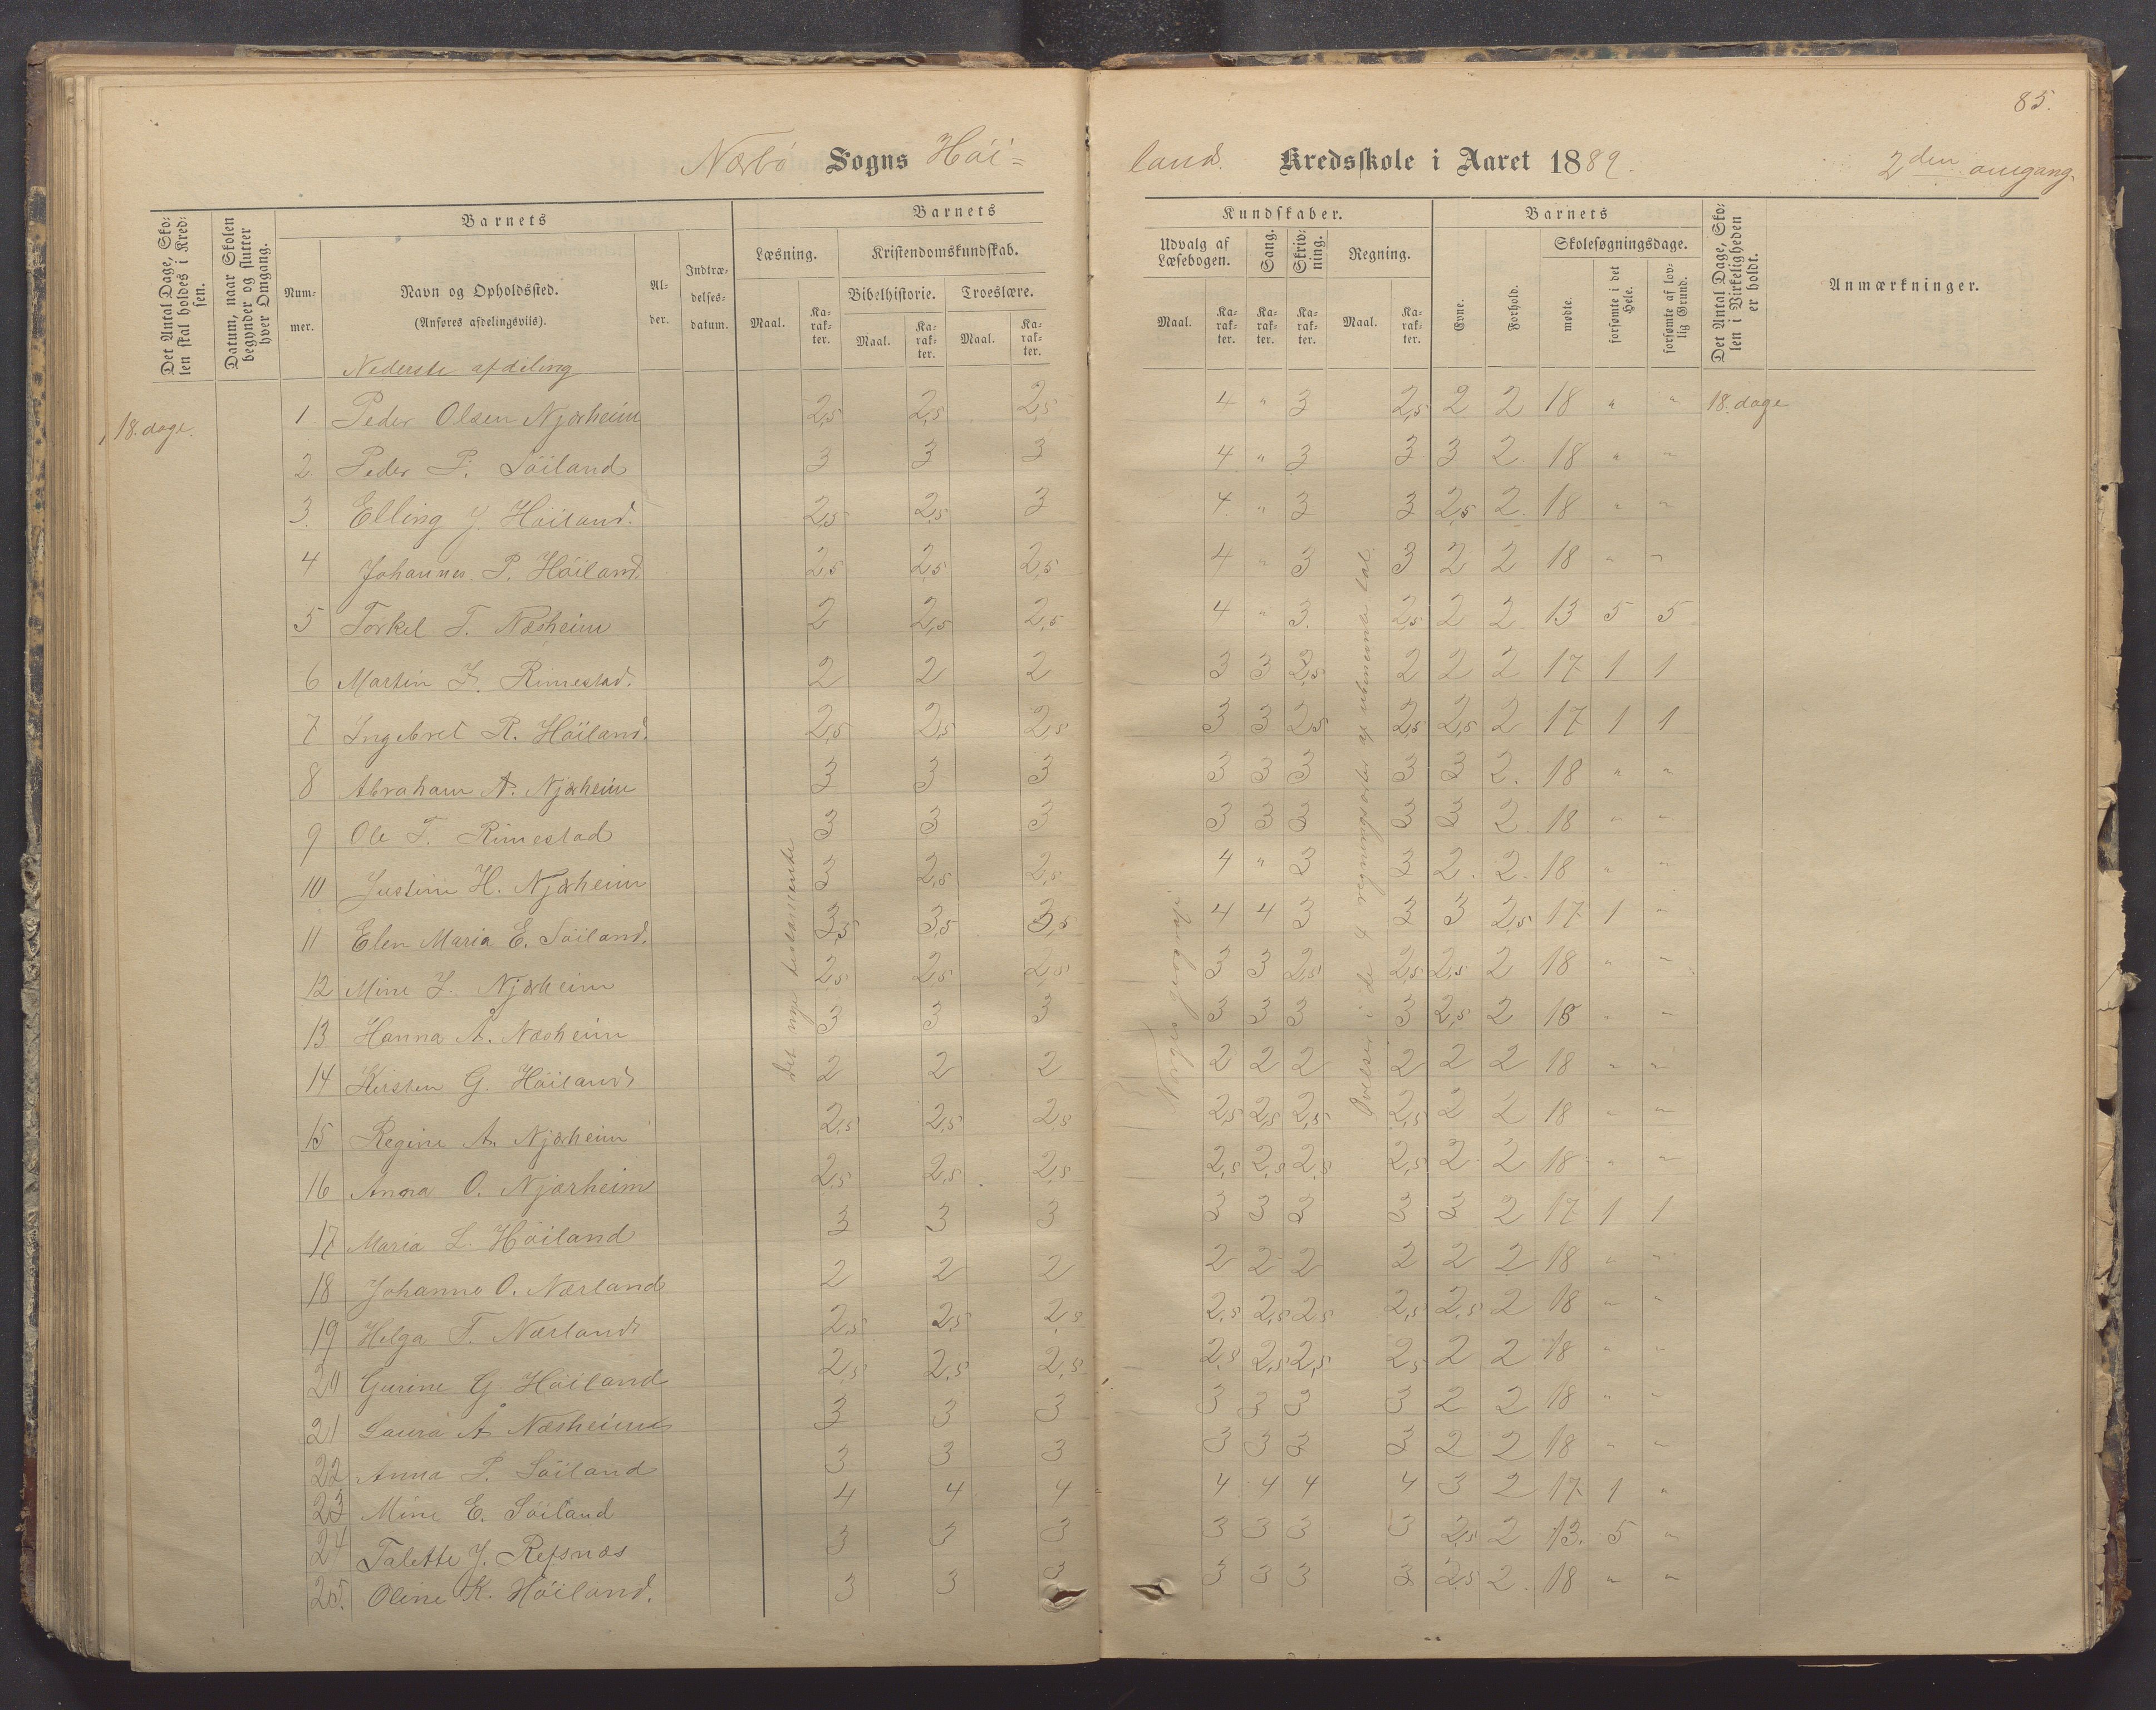 85.
Nærbö Sogns Höi=
land. Kredsskole i Aaret 1889. 2den omgang.
Det Antal Dage, Skolen skal holdes i Kredsen.
Datum, naar Skolen begynder og slutter hver Omgang.
Barnets
Nummer.
Navn og Opholdssted.
(Anføres afdelingsviis).
Alder.
Indtrædelsesdatum.
Barnets
Læsning. Kristendomskundskab.
Bibelhistorie. Troeslære.
Maal. Karakter. Maal. Karakter. Maal. Karakter.
Kundskaber.
Udvalg af Læsebogen. Sang. Skrivning. Regning.
Maal. Karakter. Karakter. Karakter. Maal. Karakter.
Barnets
Evne. Forhold. Skolesøgningsdage.
mødte. forsømte i det Hele. forsømte af lovlig Grund.
Det Antal Dage, Skolen i Virkeligheden er holdt.
Anmærkninger.
Nederste afdeling
18. dage. 1 Peder Olsen Njærheim 2,5 2,5 2,5 4 " 3 2,5 2 2 18 " " 18. dage
2 Peder P. Söiland 3 3 3 4 " 3 3 3 2 18 " "
3. Elling J. Höiland. 2,5 2,5 3 4. " 3 3 2,5 2. 18 " "
4 Johannes P. Höiland. 2,5 2,5 2,5 4 " 3 3 2 2 18 " "
5 Torkel T. Næsheim 2 2,5 2,5 4 " 3. 2,5 2 2. 13 5 5
6 Martin J. Rimestad. 2 2 2 3 3 2,5 2 2 2 17 1 1
7 Ingebret R. Höiland. 2,5 2,5 2,5 3 3 2,5 2,5 2,5 2 17 1 1
8 Abraham A. Njærheim 3 3 3 3 3 3 3 3 2. 18 " "
9 Ole T. Rimestad 3 3 3 3 3 3 3 3 2. 18 " "
10 Justine H. Njærheim 3 2,5 2,5 4 " 3 3 2. 2. 18 " "
11 Elen Maria E. Söiland. 3,5 3,5 3,5 4 4 3 3 3 2,5 17 1 "
12 Mine J. Njærheim 2,5 2,5 2,5 3 3 2,5 2,5 2,5 2 18 " "
13 Hanna A. Næsheim 3 3 3 3 3 3 3 2,5 2 18 " "
14 Kirsten G. Höiland 2 2 2 2 2 2 2 2 2 18 " "
15 Regine A. Njærheim 2,5 2,5 2,5 2,5 2,5 2,5 2,5 2 2 18 " "
16 Anna O. Njærheim 2,5 2,5 2,5 2,5 2,5 2,5 2,5 2 2 18 " "
17 Maria L. Höiland 3 3 3 3 3 3 3 3 2 17 1 1
18 Johanne O. Nærland 2 2 2 2 2 2 2 2 2 18 " "
19 Helga T. Nærland 2,5 2,5 2,5 2,5 2,5 2,5 2,5 2,5 2 18 " "
20 Gurine G Höiland 2,5 2,5 2,5 2,5 2,5 2,5 2,5 2 2 18 " "
21 Laura A Næsheim 3 3 3 3 3 3 3 2 2 18 " "
22 Anna P. Söiland 3 3 3 3 3 3 3 2 2 18 " "
23 Mine E. Söiland 4 4 4 4 4 4 4 3 2 17 1 "
24 Talette J. Refsnæs 3 3 3 3 3 3 3 2,5 2 13. 5 "
25. Oline K. Höiland. 3 3 3 3 3 3 3 2,5 2. 18 " "
Det nye testamente
Norges geografi
Övelser i de 4 regningsarter af ubenævnte tal.